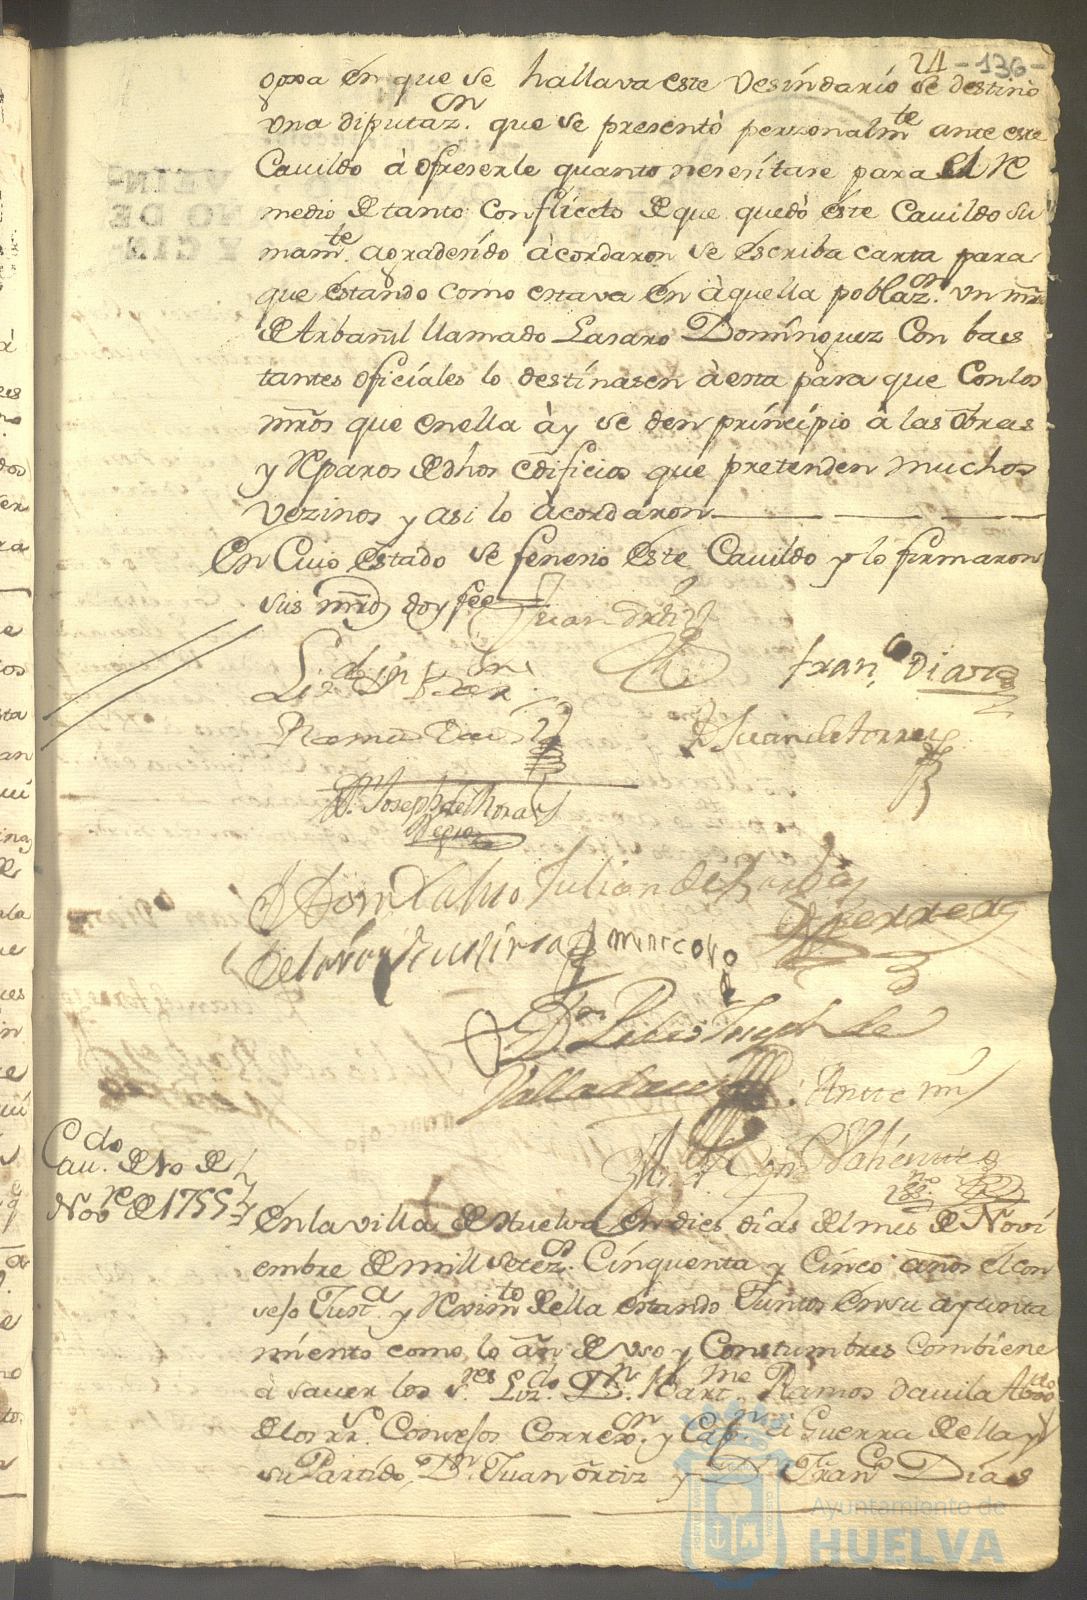 24 -136-
en que se hallava este vesindario se destino
una diputazn. que se presentò perzonalmte ante este
Cavildo à ofreserle quanto nesesitare para el Re
medio de tanto conflicto de que quedò este Cavildo su
mamte. agradesido àcordaron se escriba carta para
que estando como estava en àquella poblazn. un mro
de Arbañil llamado Lasaro Dominguez Con bas
tantes oficiales lo destinasen à esta para que Con los
mros que en ella ày se den principio à las obras
y Reparos de dhos edificios que pretenden muchos
vezinos y asi lo àcordaron
En Cuio estado se fenesio este Cavildo y lo firmaron
sus mrds doy fee
Juan Ortiz
Lizdo Dn Barme
Ramos Davila
Franco. Dias
D Juan de Torres
Dn. Joseph de Mora
D Don Calixto Julian de Bardas
Dn Pedro Joseph de
Valladares
Ante mi
Cavdo. de 10 de
Novre de 1755
En la villa de Huelva en dies dias del mes de Novi
embre de mill setezs. Cinquenta y Cinco años el con
sejo Justa. y Reximto de ella estando Juntos en su ayunta
miento como lo àn de uso y Constumbres combiene
à saver los sres Lizdo. Dn. Bartme Ramos davila Abogdo
de los Rs. Consejos Correxr. y Capn. à Guerra de ella y
su Partido, Dn. Juan ortiz y Dn Franco Dias
Ayuntamiento de
HUELVA